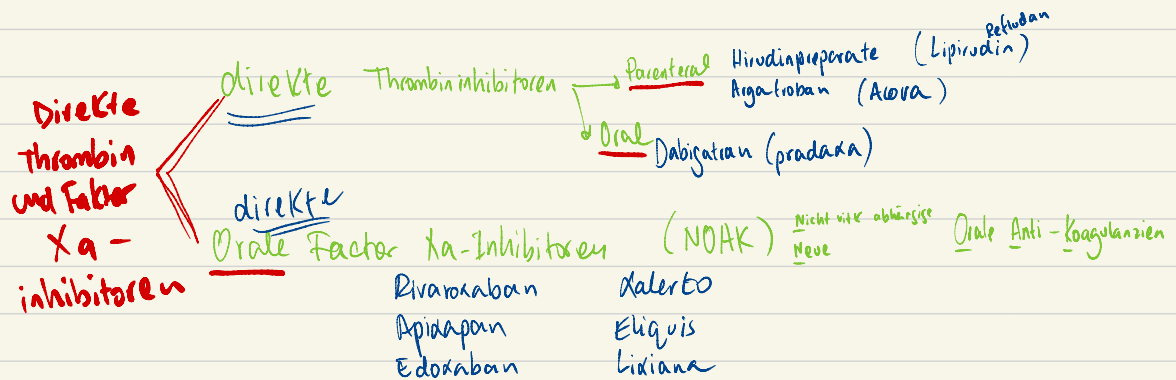 Direkte
Thrombin
und Faktor
Xa-
inhibitoren
direkte Thrombininhibitoren
Parenteral Hirudinpreparate (Lipirudin) Refludan
Argatroban (Acova)
Oral Dabigatran (pradaxa)
direkte
Orale Factor Xa-Inhibitoren (NOAK) Nicht vitk abhängige Orale Anti-Koagulanzien
Neue
Rivaroxaban Xalerto
Apixapan Eliquis
Edoxaban Lixiana